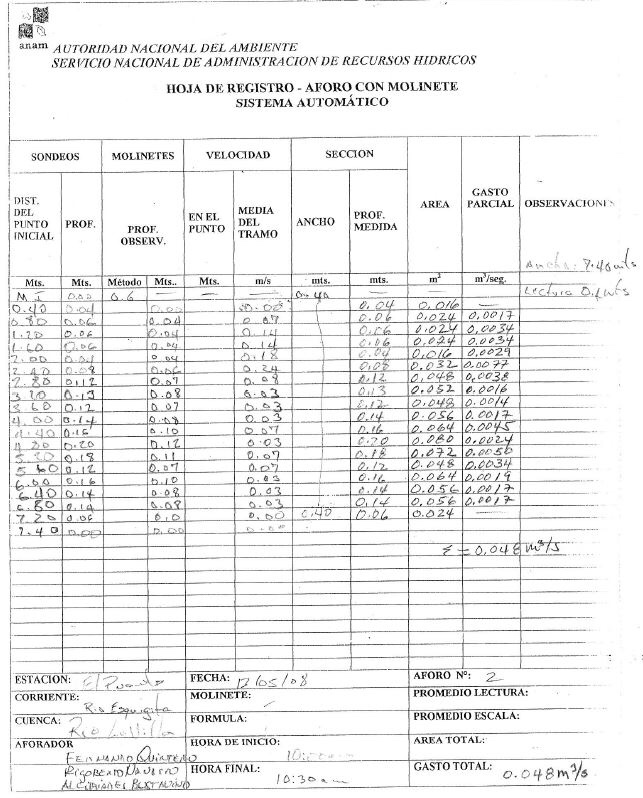 anam AUTORIDAD NACIONAL DEL AMBIENTE
SERVICIO NACIONAL DE ADMINISTRACION DE RECURSOS HIDRICOS
HOJA DE REGISTRO - AFORO CON MOLINETE
SISTEMA AUTOMÁTICO
SONDEOS MOLINETES VELOCIDAD SECCION AREA GASTO PARCIAL OBSERVACIONES
DIST. DEL PUNTO INICIAL PROF. PROF. OBSERV. EN EL PUNTO MEDIA DEL TRAMO ANCHO PROF. MEDIDA
Ancho: 7.40 mts
Mts. Mts. Método Mts.. Mts. m/s mts. mts. m² m³/seg.
M I 0.00 0.6 — — — 0.40 — — — Lectura
0.40 0.04 0.00 0.00 0.04 0.016 —
0.80 0.06 0.04 0.07 0.06 0.024 0.0017
1.20 0.06 0.04 0.14 0.06 0.024 0.0034
1.60 0.06 0.04 0.14 0.06 0.024 0.0034
2.00 0.04 0.04 0.18 0.04 0.016 0.0029
2.40 0.08 0.06 0.24 0.08 0.032 0.0077
2.80 0.12 0.07 0.08 0.12 0.048 0.0038
3.20 0.13 0.08 0.03 0.13 0.052 0.0016
3.60 0.12 0.07 0.03 0.12 0.048 0.0014
4.00 0.14 0.08 0.03 0.14 0.056 0.0017
4.40 0.16 0.10 0.07 0.16 0.064 0.0045
4.80 0.20 0.12 0.03 0.20 0.080 0.0024
5.20 0.18 0.11 0.07 0.18 0.072 0.0050
5.60 0.12 0.07 0.07 0.12 0.048 0.0034
6.00 0.16 0.10 0.03 0.16 0.064 0.0019
6.40 0.14 0.08 0.03 0.14 0.056 0.0017
6.80 0.14 0.08 0.03 0.14 0.056 0.0017
7.20 0.06 0.0 0.00 0.40 0.06 0.024 —
7.40 0.00 0.00 0.00
Σ = 0.048 m³/s
ESTACION: El Puente FECHA: 12/05/08 AFORO Nº: 2
CORRIENTE: Rio Esquiguita MOLINETE: PROMEDIO LECTURA:
CUENCA: Rio La Villa FORMULA: PROMEDIO ESCALA:
AFORADOR HORA DE INICIO: AREA TOTAL:
FERNANDO QUINTERO
RIGOBERTO NAVARRO HORA FINAL: 10:30 am GASTO TOTAL: 0.048 m³/s